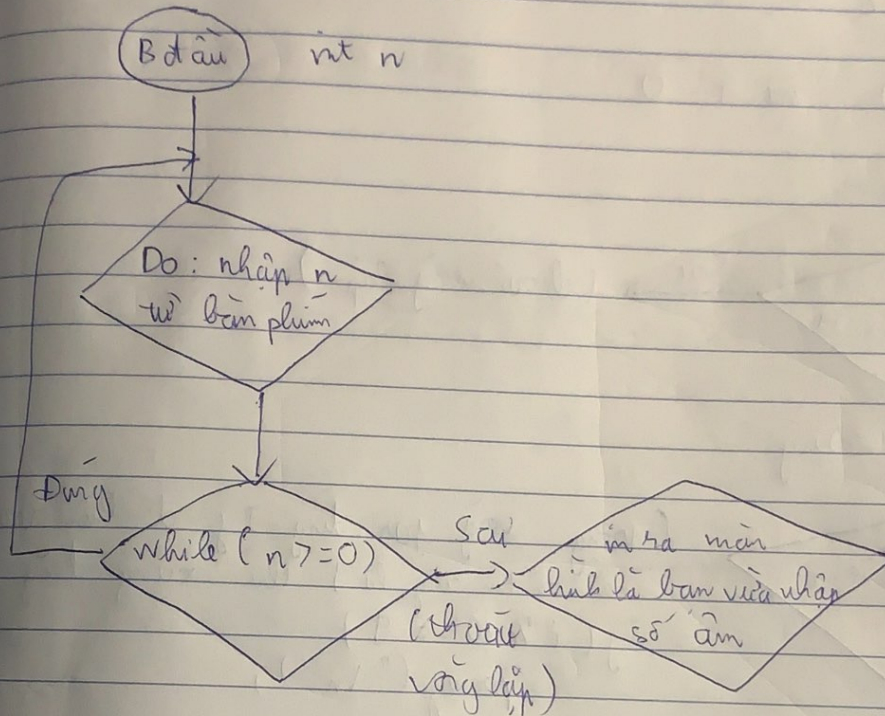 B đầu int n
Do: nhập n
từ bàn phím
Đúng
while (n >= 0)
Sai
(thoát
vòng lặp)
in ra màn
hình là bạn vừa nhập
số âm